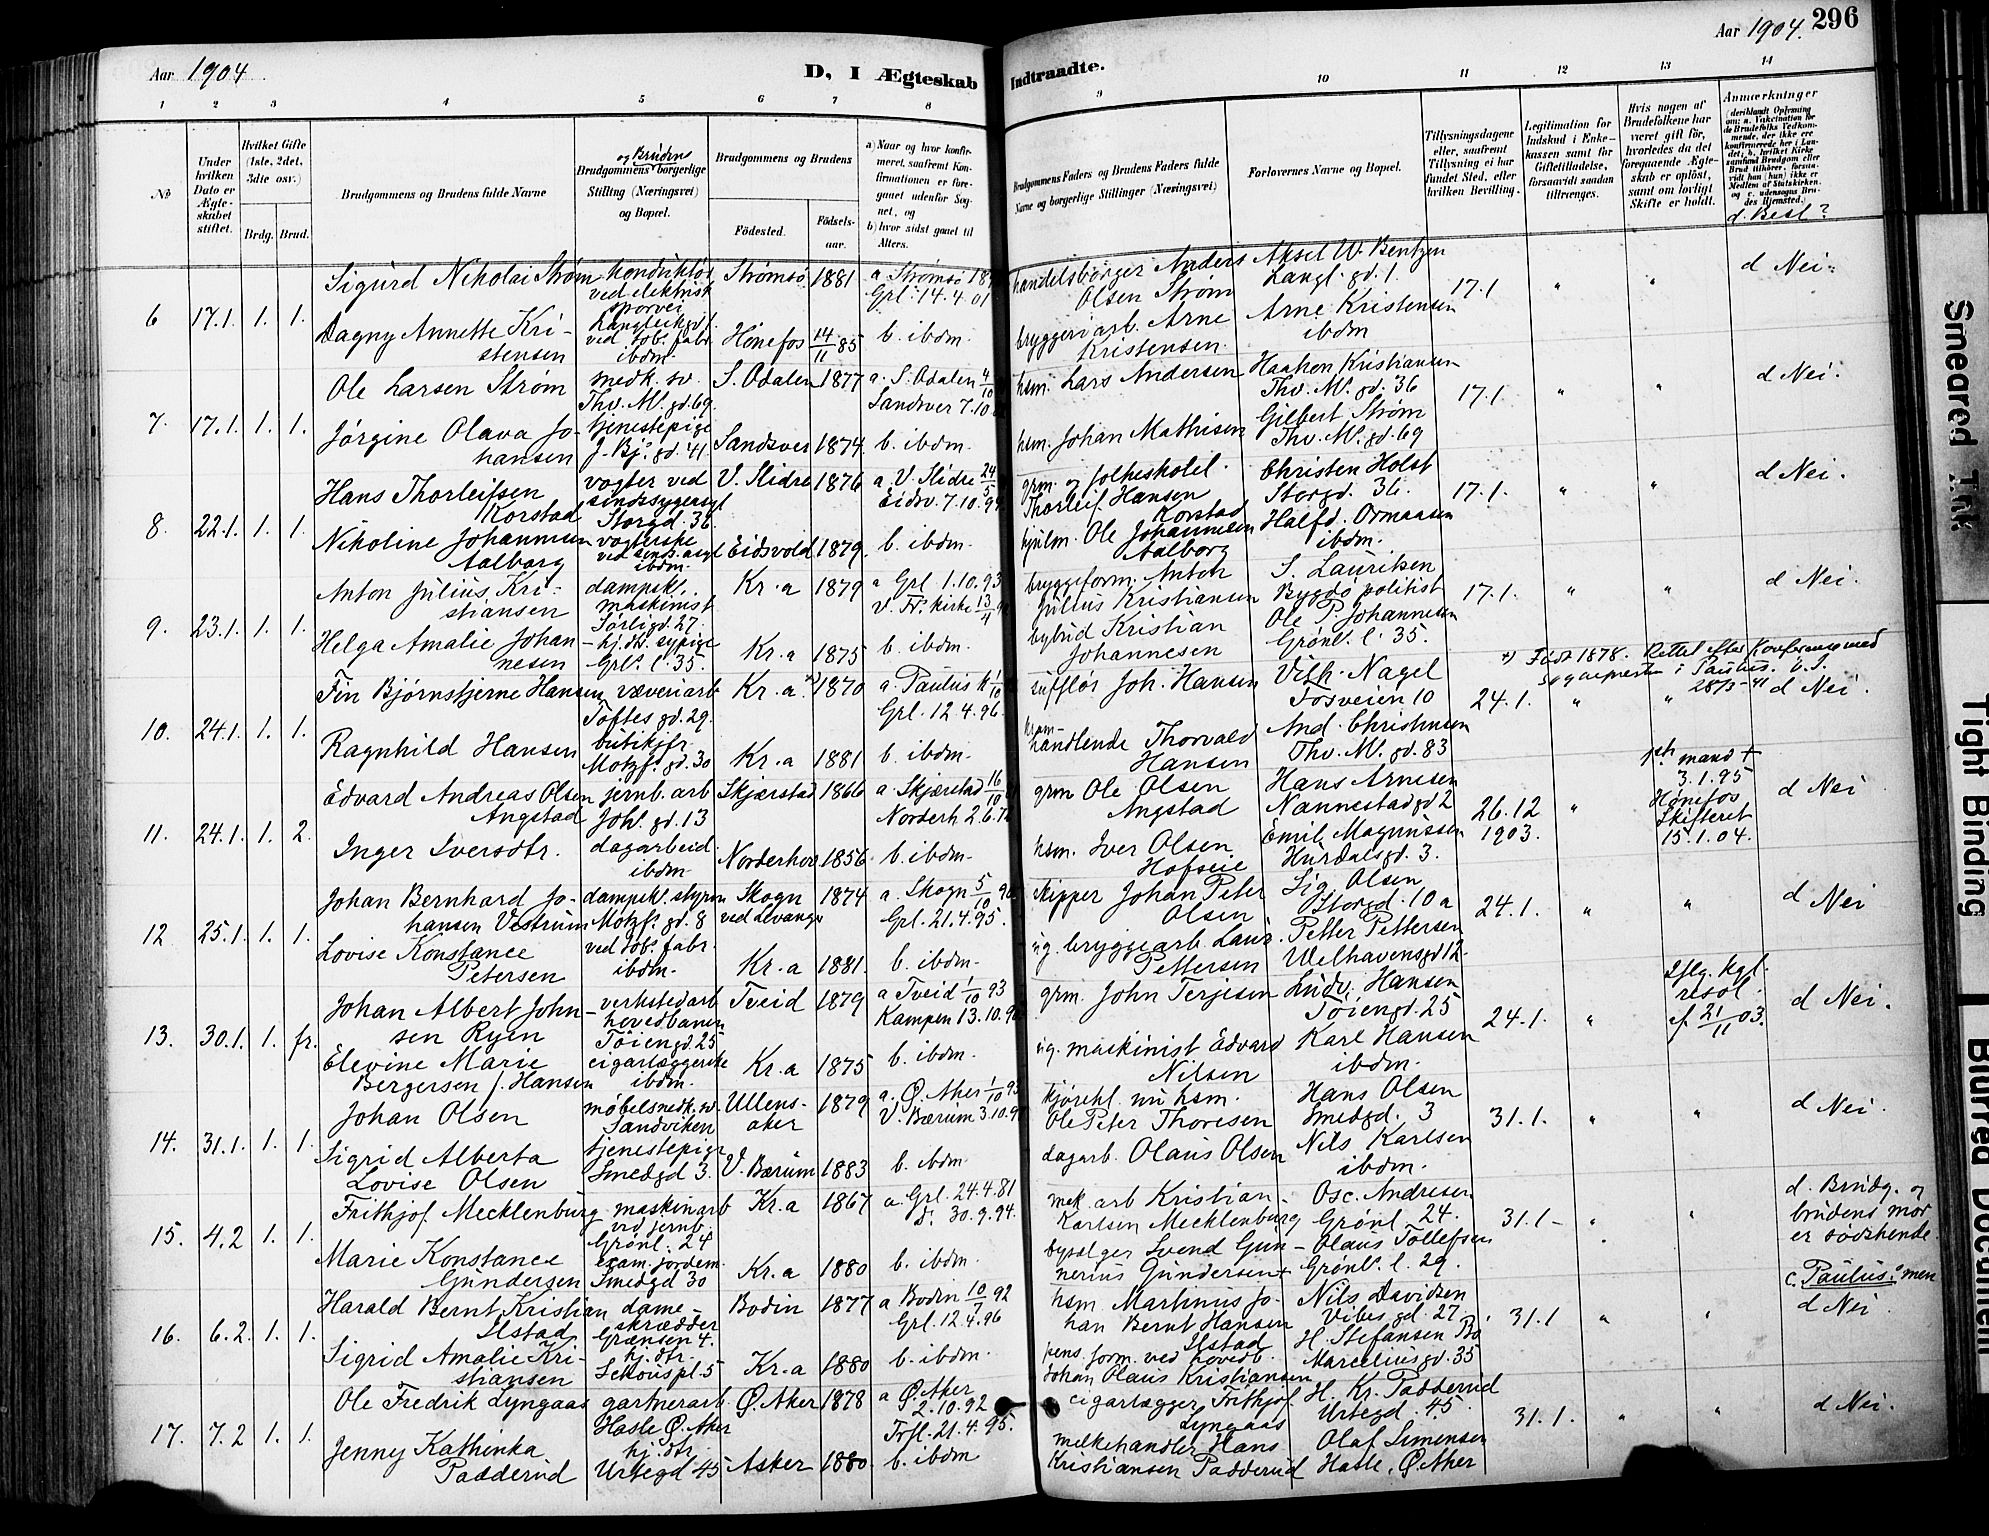 Aar 1904
D, I Ægteskab Indtraadte.
Aar 1904. 296
1 2 3 4 5 6 7 8 9 10 11 12 13 14
No
Under hvilken Dato er Ægteskabet stiftet.
Hvilket Gifte (1ste, 2det, 3die osv.)
Brdg. Brud.
Brudgommens og Brudens fulde Navne
og Brudens
Brudgommens borgerlige Stilling (Næringsvei) og Bopæl.
Brudgommens og Brudens
Fødested. Fødselsaar.
a) Naar og hvor konfirmeret, saafremt Konfirmationen er foregaaet udenfor Sognet, og
b) hvor sidst gaaet til Alters.
Brudgommens Faders og Brudens Faders fulde Navne og borgerlige Stillinger (Næringsvei)
Forlovernes Navne og Bopæl.
Tillysningsdagene eller, saafremt Tillysning ei har fundet Sted, efter hvilken Bevilling.
Legitimation for Indskud i Enkekassen samt for Giftetilladelse, forsaavidt saadan tiltrænges.
Hvis nogen af Brudefolkene har været gift før, hvorledes da det foregaaende Ægteskab er opløst, samt om lovligt Skifte er holdt.
Anmærkninger
d. Besl?
6 17.1. 1. 1.
Sigurd Nikolai Strøm konduktør ved elektrisk sporvei Strømsø 1881 a Strømsø
Grl. 14.4.01
handelsborger Anders Olsen Strøm
Aksel W. Bentzen Langl. gd. 1.
17.1 " " d Nei
Dagny Annette Kristensen ved tob. fabr. ibdm. Hønefos 14/11 85 b. ibdm.
bryggeriarb. Arne Kristensen
Arne Kristensen ibdm
7. 17.1. 1. 1.
Ole Larsen Strøm snedk. sv. Thv. M. gd. 69. S. Odalen 1877 a. S. Odalen
Sandsver 7.10
hsm. Lars Andersen
Haakon Kristiansen Thv. M. gd. 36
17.1 " " d Nei.
Jørgine Olava Johansen tjenestepige J. Bj. gd. 41 Sandsver 1874. b. ibdm.
hsm. Johan Mathisen
Gilbert Strøm Thv. M. gd. 69
8. 22.1. 1. 1.
Hans Thorleifsen Korstad vogter ved sindssygeasyl Storgd. 36 V. Slidre 1876 a. V. Slidre 24/5
Eidsv. 7.10.
grm. og folkeskolel. Thorleif Hansen Korstad
Christen Holst Storgd. 36.
17.1. " " d Nei.
Nikoline Johannesen Aalborg vogterske ved sinds. asyl ibdm. Eidsvold 1879. b. ibdm.
hjulm. Ole Johannesen Aalborg
Halfd. Ormaasen ibdm.
9. 23.1. 1. 1.
Anton Julius Kristiansen dampsk. maskinist Sørligd. 27. Kr.a 1879 a Grl. 1.10.93
V. Fr. kirke 13/4
bryggeform. Anton Julius Kristiansen
S. Lauritsen Bygdø politist
17.1. " " d Nei.
Helga Amalie Johannesen hj. dtr. sypige Grl. l. 35. Kr.a 1875 b. ibdm.
bybud Kristian Johannesen
Ole P. Johannesen Grønl. l. 35.
×) Født 1878. Rettet efter Konferanse med Sogneprestn i Paulus. 28/3-41
10. 24.1. 1. 1.
Fin Bjørnstjerne Hansen væveriarb Toftes gd. 29. Kr.a.×) 1870 a. Paulus k
Grl. 12.4.96.
sufflør Joh. Hansen
Vilh. Nagel Fosveien 10
24.1. " " d Nei.
Ragnhild Hansen butikjfr. Motzf. gd. 30 Kr.a 1881 b. ibdm.
kramhandlende Thorvald Hansen
And. Christensen Thv. M. gd. 83
11. 24.1. 1. 2.
Edvard Andreas Olsen Angstad jernb. arb Johs. gd. 13 Skjærstad 1866 a. Skjærstad 16/10
Norderh 2.6.
grm Ole Olsen Angstad
Hans Arnesen Nannestadgd 2
26.12 1903. "
1ste mand + 3.1.95 Hønefos Skifteret 15.1.04.
d Nei
Inger Iversdtr. dagarbeid. ibdm Norderhov 1856. b. ibdm.
hsm. Iver Olsen Hofseie
Emil Magnussen Hurdalsgd. 3.
12 25.1. 1. 1.
Johan Bernhard Johansen Vestrum dampsk. styrm Motzf. gd. 8 Skogn ved Levanger 1874 a. Skogn 5/10 90
Grl. 21.4.95.
skipper Johan Peter Olsen
Sig. Olsen Storgd. 10 a
24.1. " " d Nei
Lovise Konstance Petersen ved tob. fabr. ibdm. Kr.a 1881. b. ibdm.
ug. bryggearb. Laur. Pettersen
Petter Pettersen Welhavensgd 12.
13. 30.1. 1. fr.
Johan Albert Johnsen Ryen verkstedarb hovedbanen Tøiengd. 25 Tveid 1879 a Tveid 1/10 93
Kampen 13.10.
grm. John Terjesen
Ludv. Hansen Tøiengd. 25
24.1. "
Iflg. kgl. resol. af 21/11 03.
d Nei.
Elevine Marie Bergersen f. Hansen cigarlæggerske ibdm. Kr.a 1875 b. ibdm.
ug. maskinist Edvard Nilsen
Karl Hansen ibdm.
14. 31.1. 1. 1.
Johan Olsen møbelsnedk. sv. Sandviken Ullensaker 1879 a. Ø. Aker 1/10 93
V. Bærum 3.10.
kjørekl. nu hsm. Ole Peter Thoresen
Hans Olsen Smedgd. 3
31.1. " " d Nei.
Sigrid Alberta Lovise Olsen tjenestepige Smedgd 3. V. Bærum 1883 b. ibdm.
dagarb. Olaus Olsen
Nils Karlsen ibdm.
15. 4.2 1. 1.
Frithjof Mecklenburg maskinarb ved jernb. Grønl. 24 Kr.a 1867 a. Grl. 24.4.81
d: 30.9.94.
mek. arb Kristian Karlsen Mecklenburg
Osc. Andresen Grønl. 24.
31.1- " "
d. Brudg. og brudens mor er sødskende.
Marie Konstance Gundersen exam. jordem. Smedgd 30 Kr.a 1880 b. ibdm.
bysælger Svend Gunnerius Gundersen +
Olaus Tollefsen Grønl. l. 29.
16. 6.2. 1. 1.
Harald Bernt Kristian Ilstad dameskrædder Grænsen 4. Bodin 1877 a Bodin 10/7 92
Grl. 12.4.96
hsm Martinus Johan Bernt Hansen Ilstad
Nils Davidsen Vibes gd. 27.
31.1 " "
c. Paulus. men
d Nei
Sigrid Amalie Kristiansen hj. dtr. Schouspl. 5 Kr.a 1880 b. ibdm.
pens. form. ved hovedb. Johan Olaus Kristiansen
H. Stefansen Bø Marceliusgd. 35
17. 7.2 1. 1.
Ole Fredrik Lyngaas gartnerarb. Hasle Ø. Aker Ø. Aker 1878 a Ø. Aker 2.10.92
Frfl. 21.4.95.
cigarlægger Frithjof Lyngaas
H. Kr. Padderud Urtegd. 45.
31.1. " " d Nei.
Jenny Kathinka Padderud hj. dtr. Urtegd 45 Asker 1880. b. ibdm
melkehandler Hans Kristiansen Padderud
Olaf Simensen Hasle, Ø. Aker
Smeared Ink
Tight Binding
Blurred Document